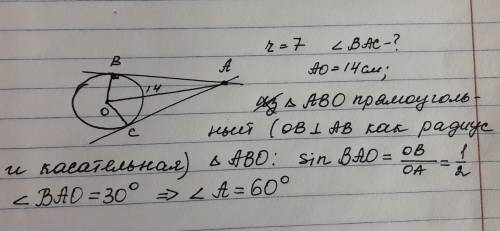 B
A
14
O
C
r = 7 ∠BAC - ?
AO = 14 см;
△ ABO прямоуголь-
ный (OB ⊥ AB как радиус
и касательная) △ ABO: sin BAO = OB/OA = 1/2
∠BAO = 30° ⇒ ∠A = 60°